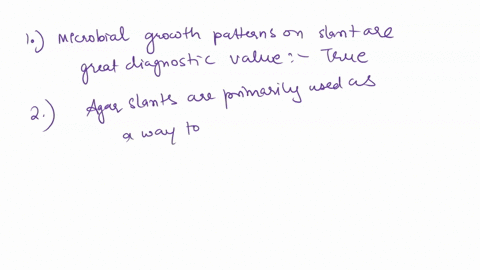 1.) Microbial growth patterns on slant are
great diagnostic value:- True
2.) Agar slants are primarily used as
a way to